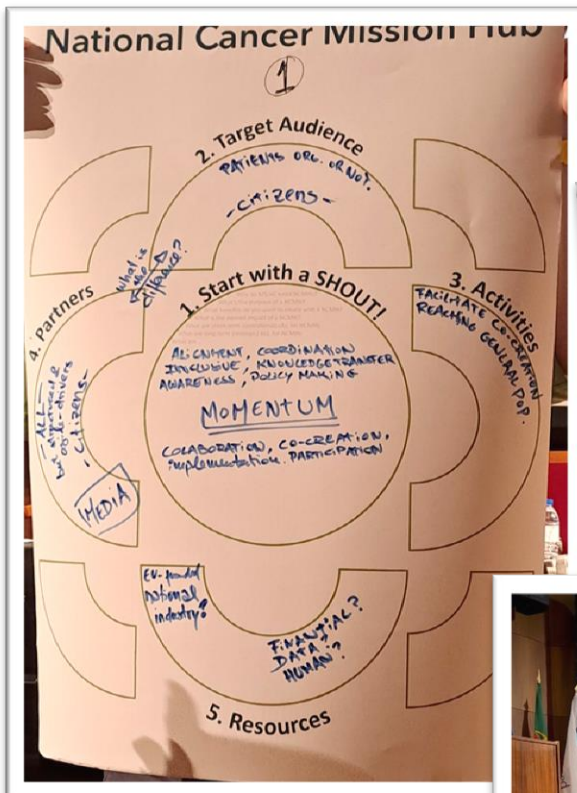 National Cancer Mission Hub
1
2. Target Audience
PATIENTS ORG. OR NOT.
- CITIZENS -
What is the difference?
1. Start with a SHOUT!
ALIGNMENT, COORDINATION
INCLUSIVE, KNOWLEDGE TRANSFER
AWARENESS, POLICY MAKING
MOMENTUM
COLABORATION, CO-CREATION,
implementation. PARTICIPATION
3. Activities
FACILITATE CO-CREATION
REACHING GENERAL POP.
4. Partners
- ALL -
but
- citizens -
MEDIA
EU-funded
national
industry?
FINANCIAL?
DATA?
HUMAN?
5. Resources